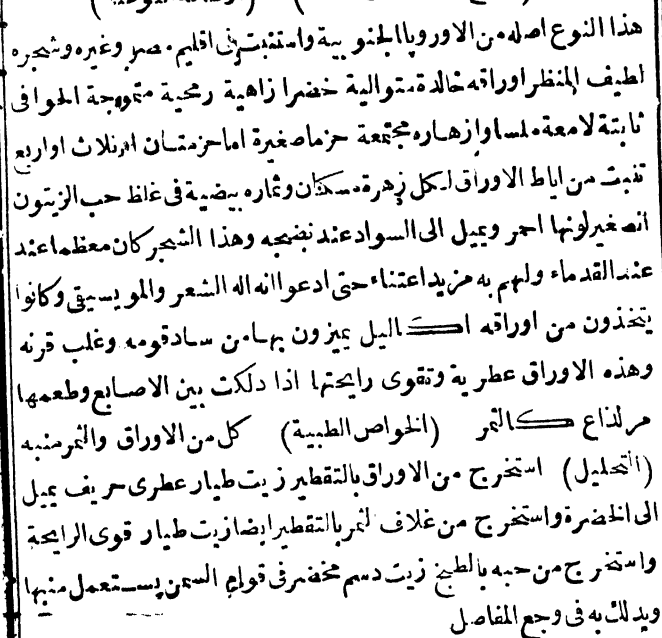 هذا النوع اصله من الاوروپا الجنوبية واستنبت فى اقليم مصر وغيره وشجره
لطيف المنظر اوراقه خالدة متوالية خضرا زاهية رمحية متموجة الحوافى
ثابتة لامعة ملسا وازهاره مجتمعة حزما صغيرة اما حزمتان او ثلاث او اربع
تنبت من اباط الاوراق لكل زهرة مسكنان وثماره بيضية فى غلظ حب الزيتون
الصغير لونها احمر ويميل الى السواد عند نضجه وهذا الشجر كان معظما عند
عند القدماء ولهم به مزيد اعتناء حتى ادعوا انه اله الشعر والمويسيقى وكانوا
يتخذون من اوراقه اكاليل يميزون بها من ساد قومه وغلب قرنه
وهذه الاوراق عطرية وتقوى رايحتها اذا دلكت بين الاصابع وطعمها
مر لذاع كالثمر (الخواص الطبية) كل من الاوراق والثمر منبه
(التحليل) استخرج من الاوراق بالتقطير زيت طيار عطرى حريف يميل
الى الخضرة واستخرج من غلاف الثمر بالتقطير ايضا زيت طيار قوى الرايحة
واستخرج من حبه بالطبخ زيت دسم مخضر فى قوام السمن يستعمل منبها
ويدلك به فى وجع المفاصل